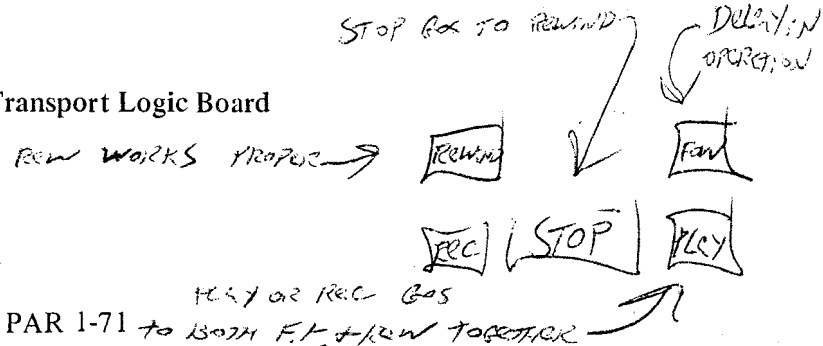 STOP GOS TO REWIND
DELAY IN
OPERATION
Transport Logic Board
REW WORKS PROPER
REWIND
FOW
REC
STOP
PLAY
PLAY OR REC GOS
PAR 1-71 to BOTH F.F. + REW TOGETHER